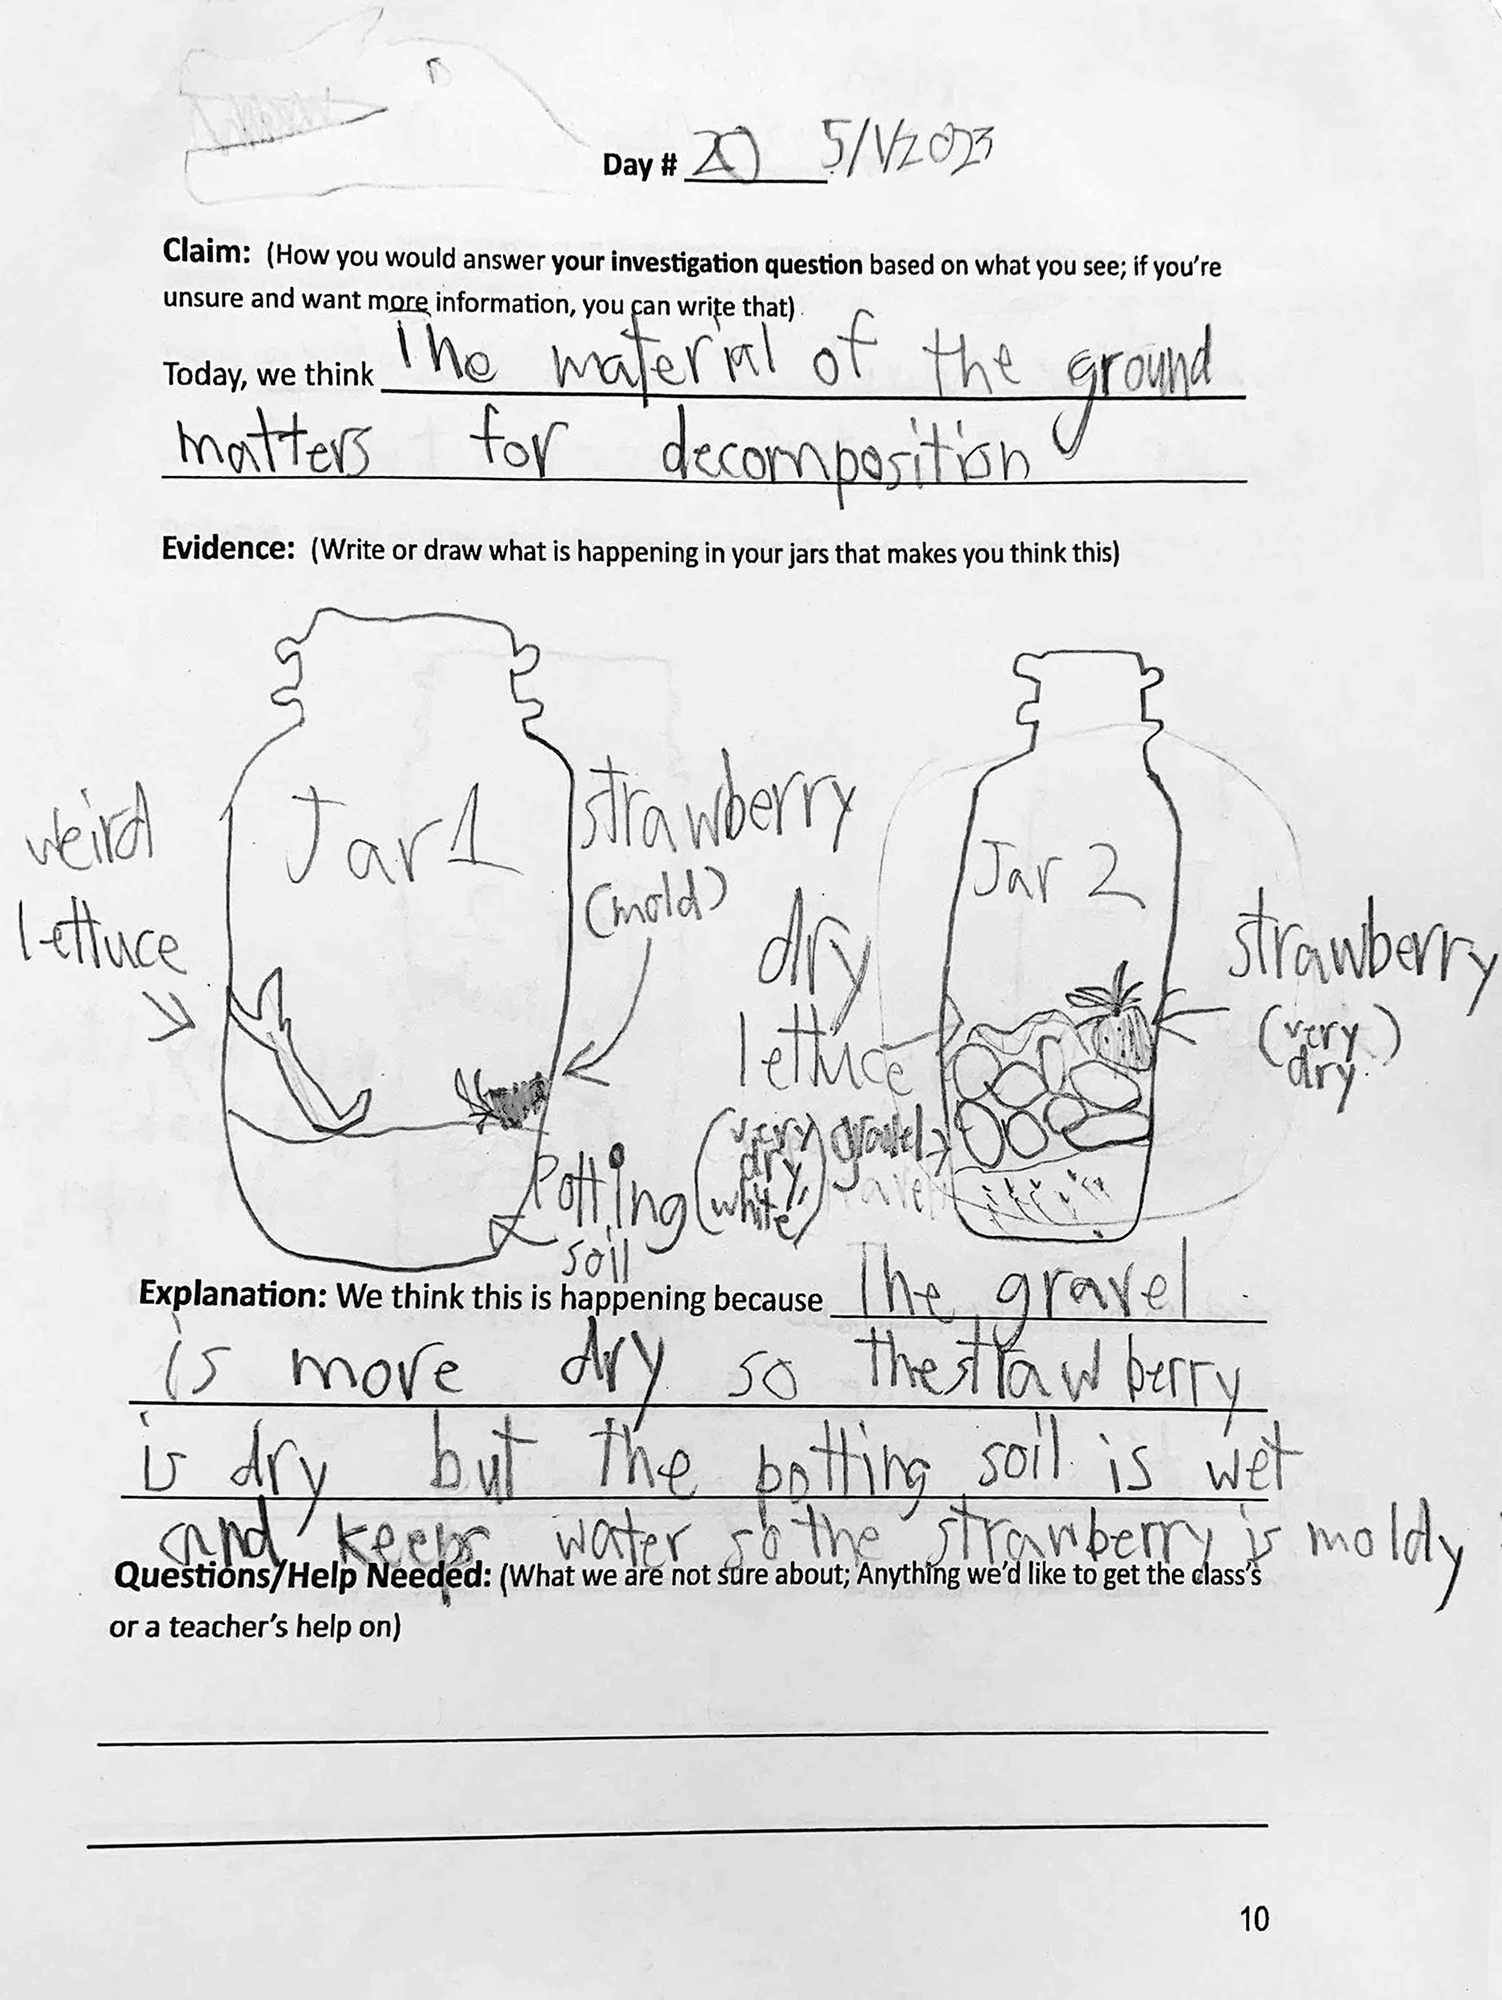 Day # 20 5/1/2023
Claim: (How you would answer your investigation question based on what you see; if you're
unsure and want more information, you can write that)
Today, we think The material of the ground
matters for decomposition
Evidence: (Write or draw what is happening in your jars that makes you think this)
weird
lettuce
Jar 1
strawberry
(mold)
Potting
soil
dry
lettuce
(very
dry,
white)
gravel
Jar 2
strawberry
(very
dry)
Explanation: We think this is happening because The gravel
is more dry so the strawberry
is dry but the potting soil is wet
and keeps water so the strawberry is moldy
Questions/Help Needed: (What we are not sure about; Anything we'd like to get the class's
or a teacher's help on)
10